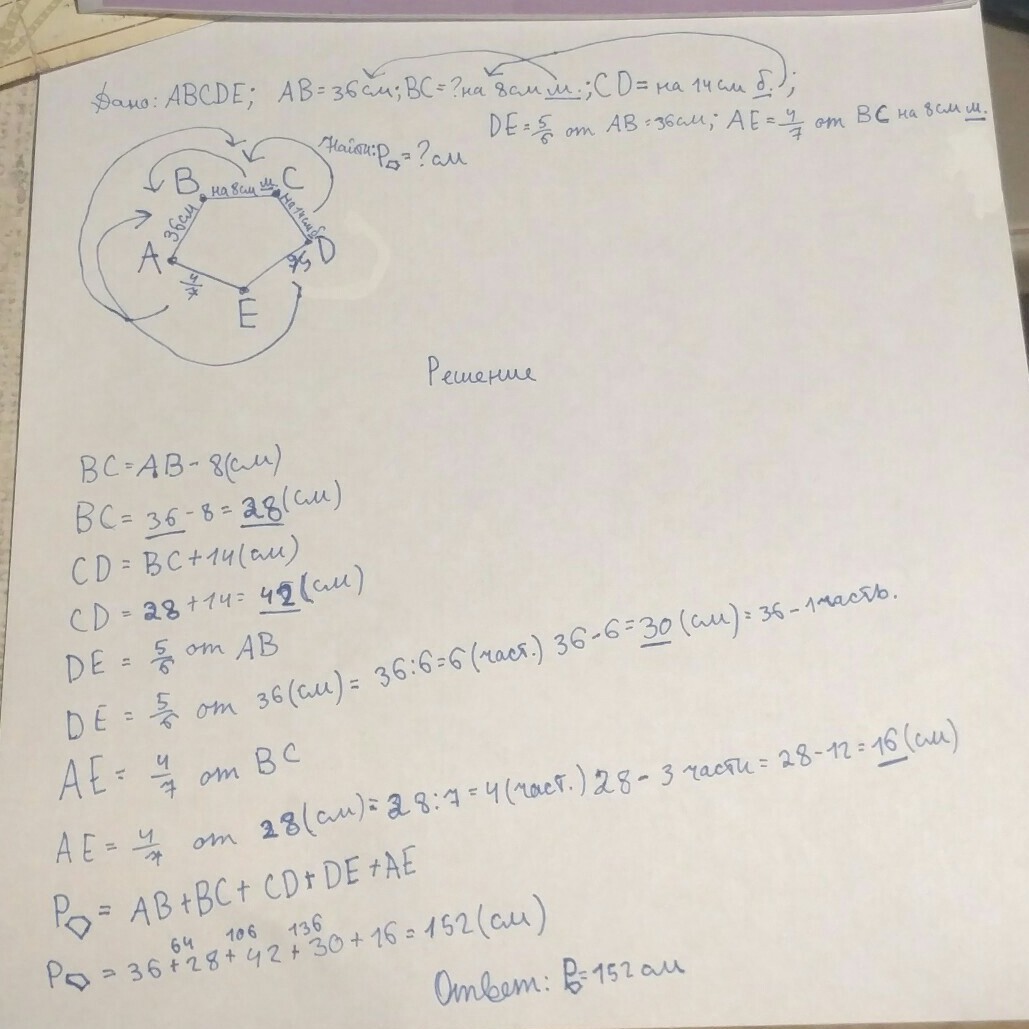 Дано: ABCDE; AB=36см; BC=? на 8см м.; CD= на 14см б.;
DE=5/6 от AB=36см; AE=4/7 от BC на 8см м.
Найти: P=?см
B на 8см м C
36см
на 14см б
A
D
4/7
5/6
E
Решение
BC=AB-8(см)
BC=36-8=28(см)
CD=BC+14(см)
CD=28+14=42(см)
DE=5/6 от AB
DE=5/6 от 36(см)=36:6=6(част.) 36-6=30(см)=36-1часть.
AE=4/7 от BC
AE=4/7 от 28(см)=28:7=4(част.) 28-3 части=28-12=16(см)
P=AB+BC+CD+DE+AE
64 106 136
P=36+28+42+30+16=152(см)
Ответ: P=152см